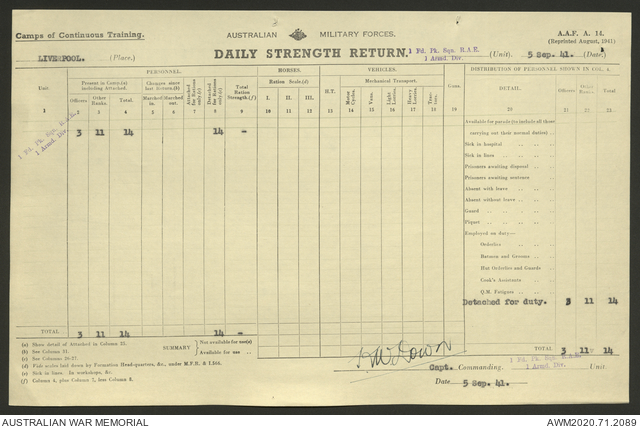 Camps of Continuous Training.
AUSTRALIAN MILITARY FORCES.
A.A.F. A. 14.
(Reprinted August, 1941)
DAILY STRENGTH RETURN.
1 Fd. Pk. Sqn. R.A.E.
1 Armd. Div.
(Unit). 5 Sep. 41. (Date)
LIVERPOOL. (Place.)
PERSONNEL. HORSES. VEHICLES. DISTRIBUTION OF PERSONNEL SHOWN IN COL. 4.
Unit. Present in Camp (a) including Attached. Changes since last Return.(b) Attached for Rations only.(c) Detached for Rations only.(c) Total Ration Strength.(f) Ration Scale.(d) H.T. Mechanical Transport. Guns. DETAIL. Officers Other Ranks. Total.
Officers Other Ranks. Total. Marched in. Marched out. I. II. III. Motor Cycles. Vans. Light Lorries. Heavy Lorries. Tractors.
1 2 3 4 5 6 7 8 9 10 11 12 13 14 15 16 17 18 19 20 21 22 23
1 Fd. Pk. Sqn. R.A.E.
1 Armd. Div.
3 11 14 14 -
Available for parade (to include all those
carrying out their normal duties)
Sick in hospital
Sick in lines
Prisoners awaiting disposal
Prisoners awaiting sentence
Absent with leave
Absent without leave
Guard
Piquet
Employed on duty—
Orderlies
Batmen and Grooms
Hut Orderlies and Guards
Cook's Assistants
Q.M. Fatigues
Detached for duty. 3 11 14
TOTAL 3 11 14 14 -
(a) Show detail of Attached in Column 22.
(b) See Column 31.
(c) See Columns 26-27.
(d) Fish scales laid down by Formation Head-quarters, &c., under M.F.R. & I.
(e) Sick in lines. In workshops, &c.
(f) Column 4, plus Column 7, less Column 8.
SUMMARY
Not available for use
Available for use
TOTAL 3 11 14
Capt. Commanding. 1 Fd. Pk. Sqn. R.A.E.
1 Armd. Div. Unit
Date 5 Sep. 41.
AUSTRALIAN WAR MEMORIAL
AWM2020.71.2089